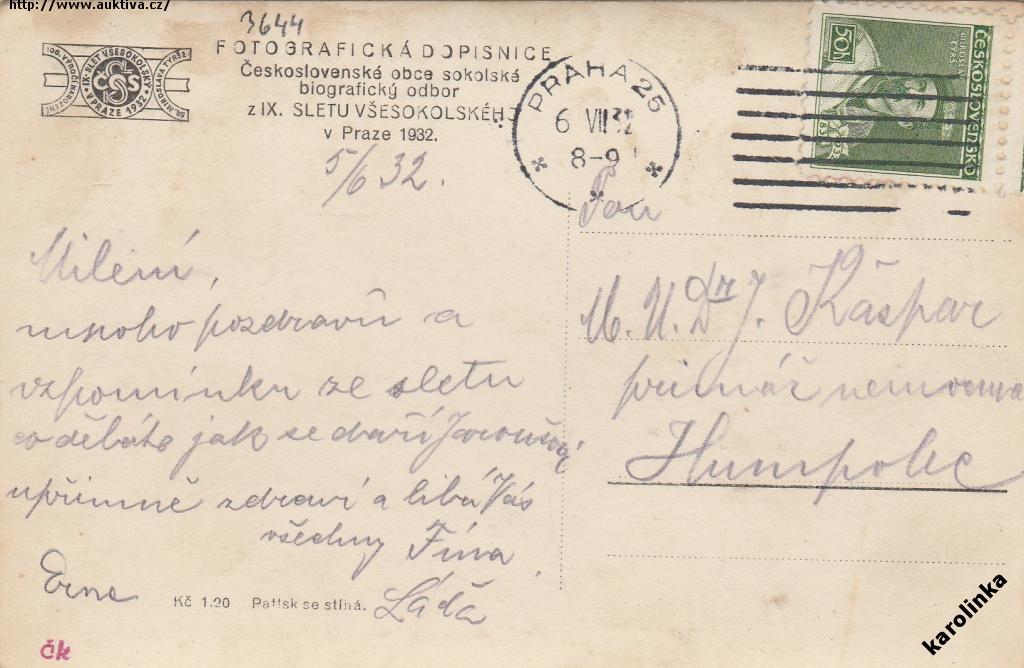 http://www.auktiva.cz/
3644
FOTOGRAFICKÁ DOPISNICE
Československé obce sokolské
biografický odbor
z IX. SLETU VŠESOKOLSKÉHO
v Praze 1932.
100. VÝROČÍ NAROZENÍ
IX. SLET VŠESOKOLSKÝ
V PRAZE 1932
ČOS
DR. MIROSLAVA TYRŠE
PRAHA 25
6 VII 32
8-9
50h
MIROSLAV TYRŠ
ČESKOSLOVENSKO
5/6 32.
Milení,
mnoho pozdravů a
vzpomínku ze sletu
co děláte jak se daří Jaroušovi
upřímně zdraví a líbá Vás
všechny Fína
Láďa
Pan
M.U.Dr J. Kašpar
primář nemocnice
Humpolec
Kč 1.20 Patisk se stíhá.
čk
karolinka